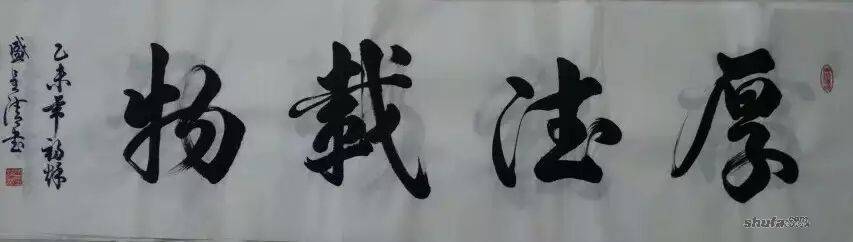 厚德載物
乙未年初秋
盛清书
shufa